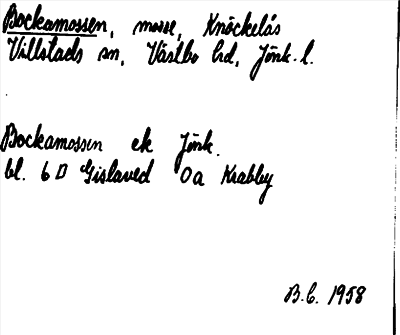 Bockamossen, mosse, Knöckelås
Villstads sn, Västbo hd, Jönk. l.
Bockamossen ek Jönk.
bl. 6 D Gislaved 0a Krabby
B.C. 1958